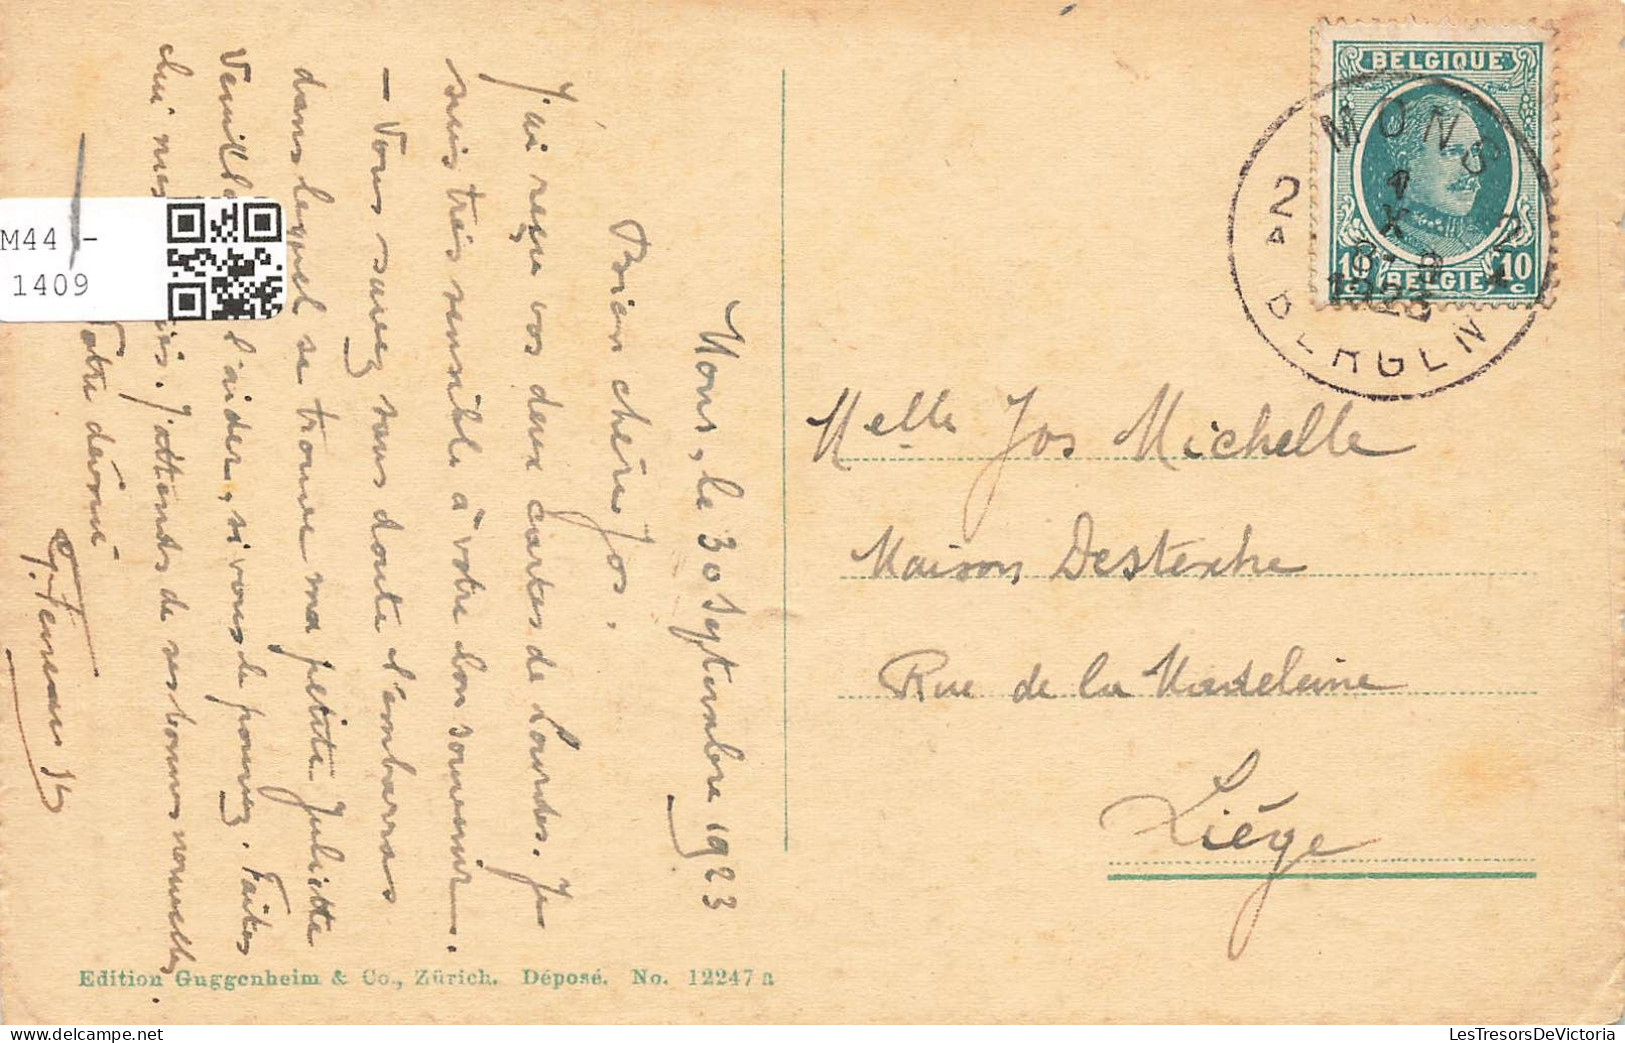 Mons, le 30 Septembre 1923
Bien chère Jos.
J'ai reçu vos deux cartes de Lourdes. Je
suis très sensible à votre bon souvenir.
— Vous savez sans doute l'embarras
dans lequel se trouve ma petite Juliette
l'aider, si vous le pouvez. Faites
chui mes J'attends de vos bonnes nouvelles
Votre dévoué
Melle Jos Michelle
Maison Destexhe
Rue de la Madeleine
Liége
BELGIQUE
10 BELGIE 10
c
MONS 2
2A BERGEN
X
8-9
1923
M44 -
1409
Edition Guggenheim & Co., Zürich. Déposé. No. 12247 a
LesTresorsDeVictoria